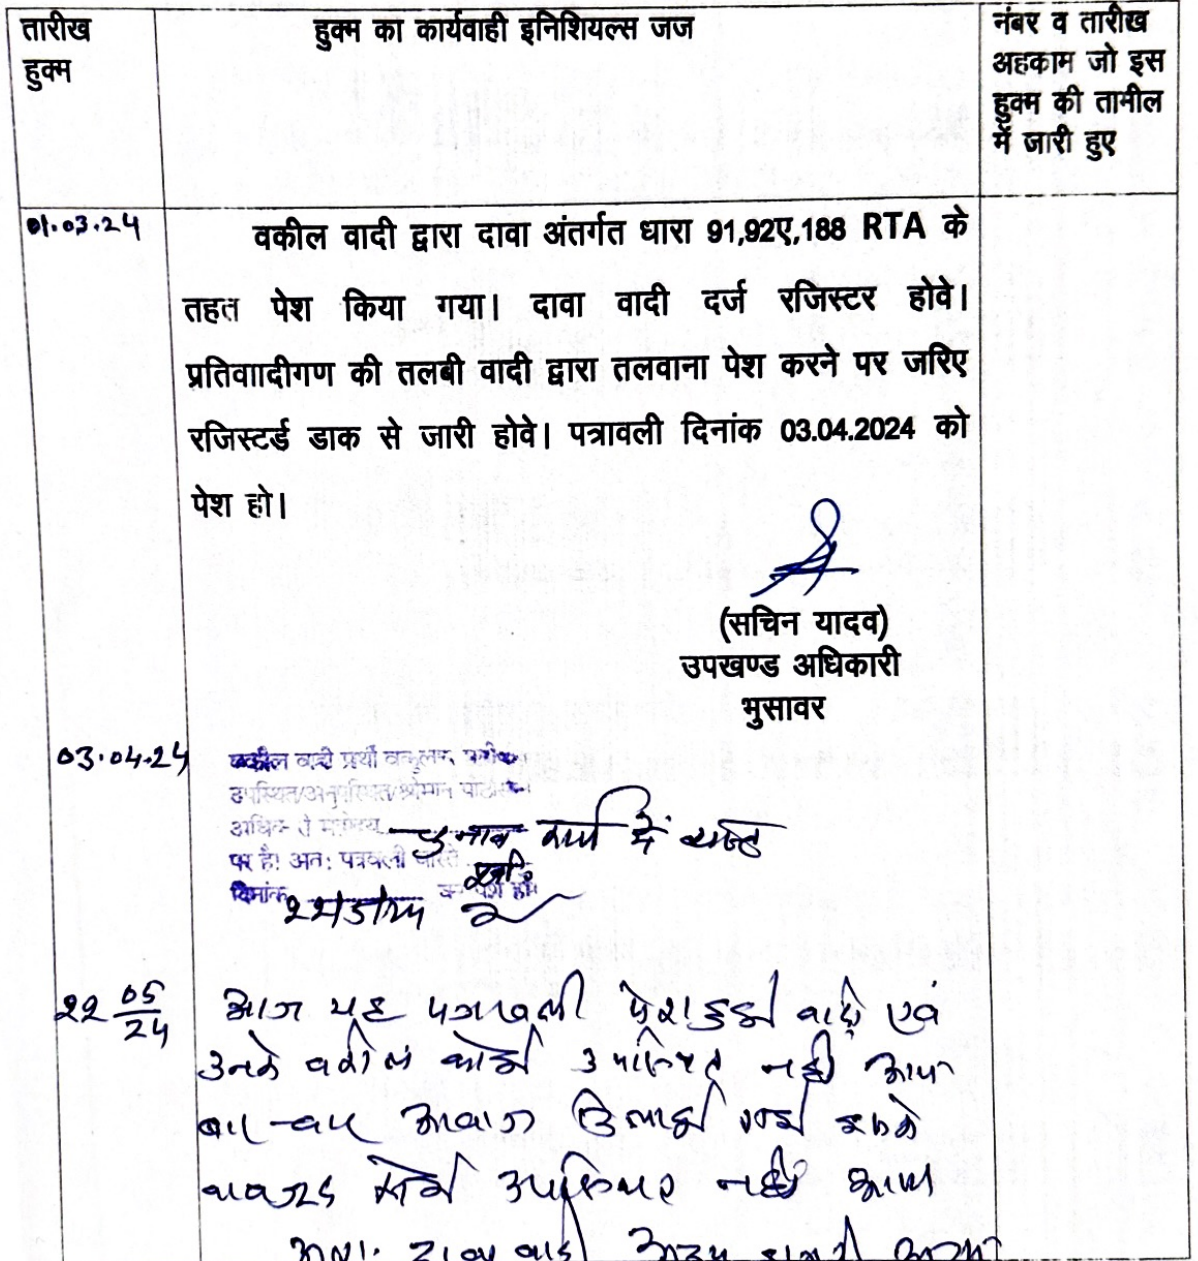 तारीख
हुक्म
हुक्म का कार्यवाही इनिशियल्स जज
नंबर व तारीख
अहकाम जो इस
हुक्म की तामील
में जारी हुए
01.03.24
वकील वादी द्वारा दावा अंतर्गत धारा 91,92ए,188 RTA के
तहत पेश किया गया। दावा वादी दर्ज रजिस्टर होवे।
प्रतिवाादीगण की तलबी वादी द्वारा तलवाना पेश करने पर जरिए
रजिस्टर्ड डाक से जारी होवे। पत्रावली दिनांक 03.04.2024 को
पेश हो।
(सचिन यादव)
उपखण्ड अधिकारी
भुसावर
03.04.24
वकील वादी
उपस्थित/अनुपस्थित/श्रीमान
चुनाव कार्य में व्यस्त
पर है। अतः पत्रावली वास्ते
दिनांक को पेश हो।
22 05/24
आज यह पत्रावली पेश हुई वादी एवं
उनके वकील कोई उपस्थित नहीं आया
बार-बार आवाज दिलाई गई इसके
बावजूद कोई उपस्थित नहीं आया
अतः दावा वादी अदम